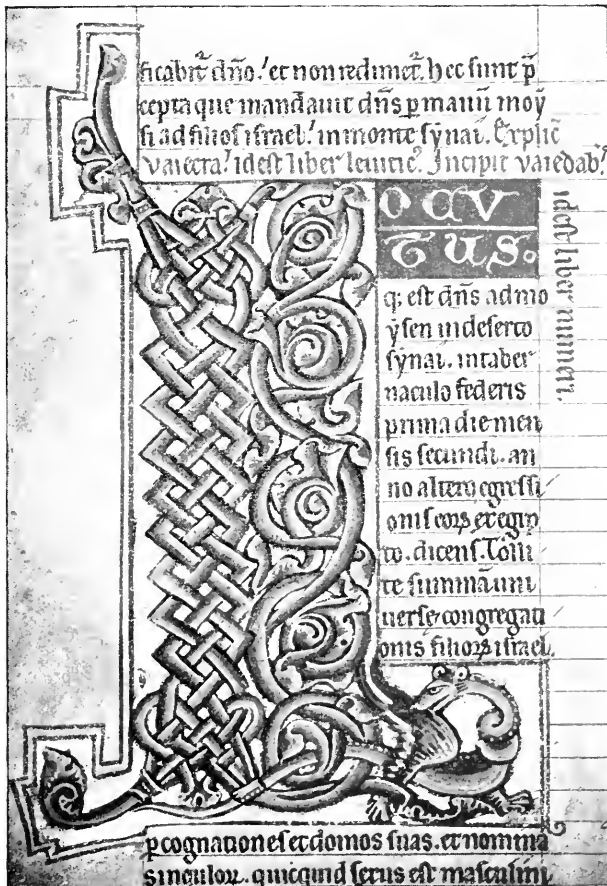 ficabit̃ dño.' et non redimet̃. hec sunt p̃
cepta que mandauit dñs p manũ moy
si ad filios israel.' in monte sẏnai. Explic̃
vaiecra.' idest liber leuitic᷒. Incipit vaiedab᷒.'
idest liber numeri.
L OCV
TUS.
q; est dñs ad mo
ẏsen in deserto
sẏnai. in taber
naculo federis
prima die men
sis secundi. an
no altero egressi
onis eoꝝ ex egip
to. dicens. Tolli
te summã uni
uerse congregati
onis filioꝝ israel
p cognationes et domos suas. et nomina
singuloꝝ. quicquid sexus est masculini